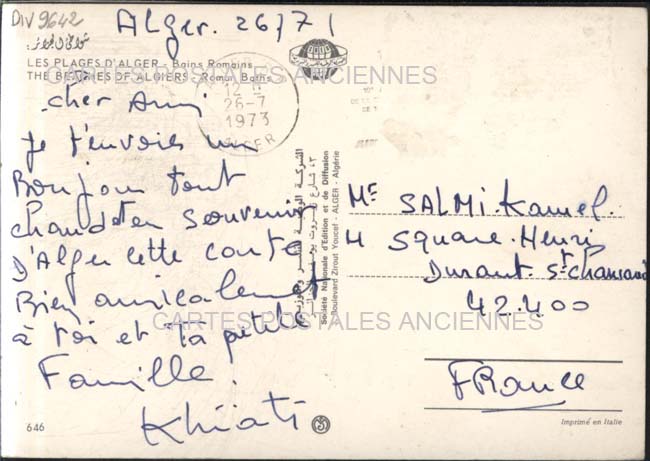 DIV 9642
Alger. 26/7/
شواطئ الجزائر
LES PLAGES D'ALGER - Bains Romains
THE BEACHES OF ALGIERS - Roman Baths
CARTES POSTALES ANCIENNES
12 H
26-7
1973
ALGER
cher Ami
je t'envoies un
Bonjour tout
chaud des souvenirs
D'Alger cette carte
Bien amicalement
à toi et ta petite
Famille.
Khiati
646
Société Nationale d'Edition et de Diffusion
Boulevard Zirout Youcef - ALGER - Algérie
Mr SALMI. Kamel.
4 Square. Henri
Durant St chamand
42.400
CARTES POSTALES ANCIENNES
FRance
Imprimé en Italie